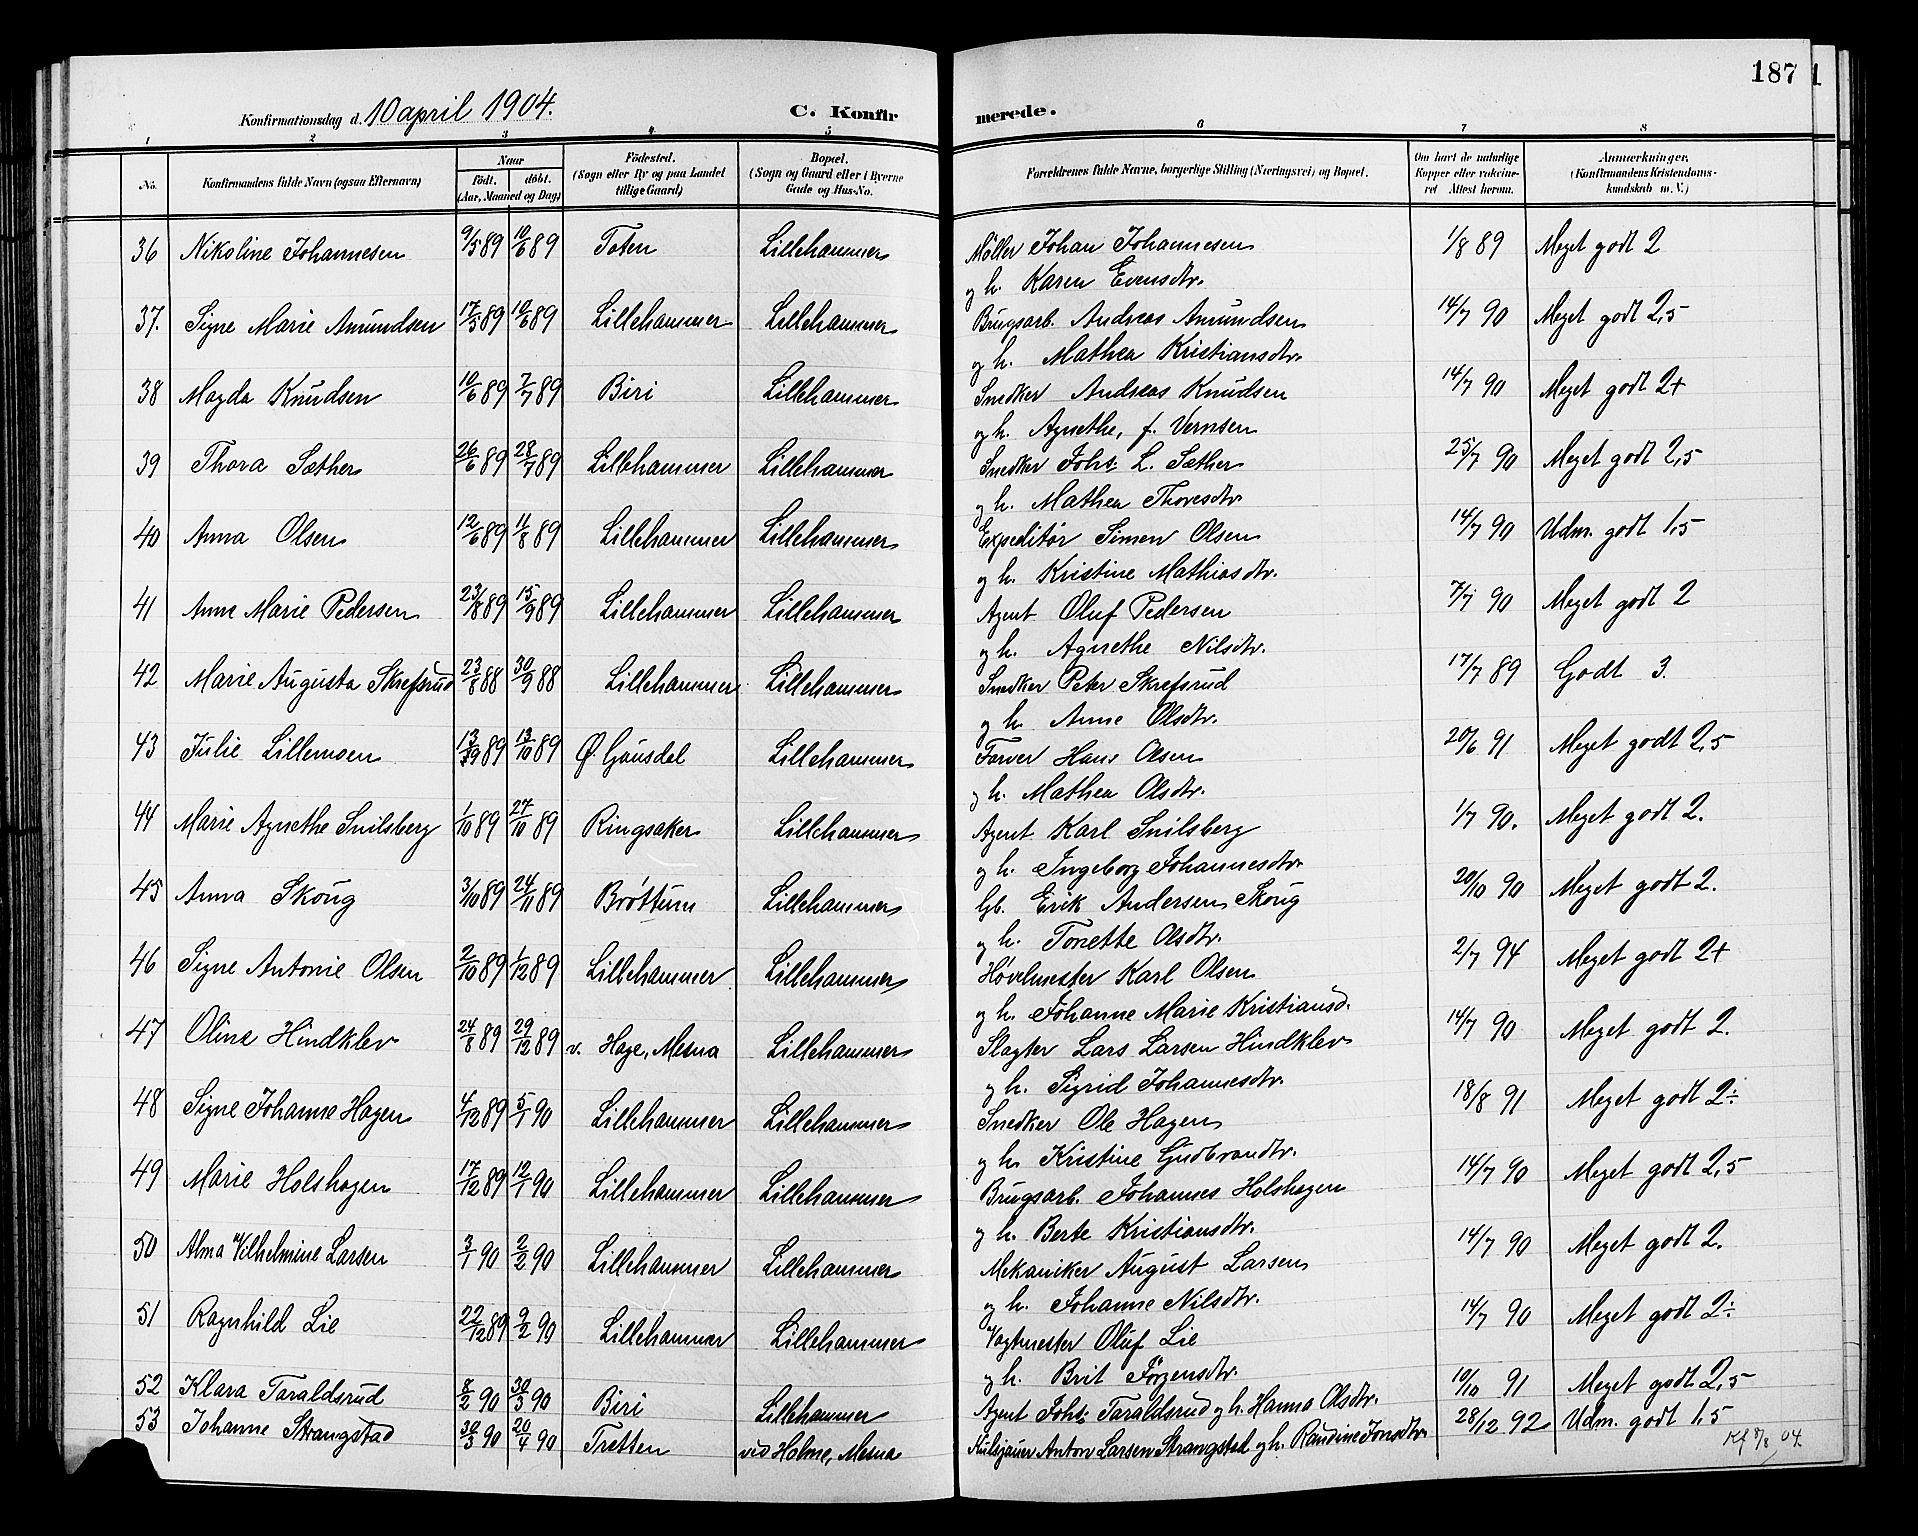 187
Konfirmationsdag d. 10 april 1904.
C. Konfir merede.
1 2 3 4 5 6 7 8
No. Konfirmandens fulde Navn (ogsaa Efternavn) Naar Født. døbt. (Aar, Maaned og Dag) Fødested. (Sogn eller By og paa Landet tillige Gaard) Bopæl. (Sogn og Gaard eller i Byerne Gade og Hus-No. Forældrenes fulde Navne, borgerlige Stilling (Næringsvei) og Bopæl. Om havt de naturlige Kopper eller vakcineret Attest herom. Anmærkninger. (Konfirmandens Kristendomskundskab m. V.)
36 Nikoline Johannesen 9/5 89 10/6 89 Toten Lillehammer Møller Johan Johannesen 1/8 89 Meget godt 2
og h. Karen Evensdtr.
37. Signe Marie Amundsen 17/5 89 10/6 89 Lillehammer Lillehammer Brugsarb. Andreas Amundsen 14/7 90 Meget godt 2,5
og h. Mathea Kristiansdtr.
38 Magda Knudsen 10/6 89 7/7 89 Biri Lillehammer Snedker Andreas Knudsen 14/7 90 Meget godt 2+
og h. Agnethe, f. Vernsen
39 Thora Sæther 26/6 89 28/7 89 Lillehammer Lillehammer Snedker Johs. L. Sæther 25/7 90 Meget godt 2,5
og h. Mathea Thoresdtr
40 Anna Olsen 12/6 89 11/8 89 Lillehammer Lillehammer Expeditør Simen Olsen 14/7 90 Udm. godt 1,5
og h. Kristine Mathiasdtr.
41 Anna Marie Pedersen 23/8 89 15/9 89 Lillehammer Lillehammer Agent Oluf Pedersen 7/7 90 Meget godt 2
og h. Agnethe Nilsdtr.
42 Marie Augusta Skrefsrud 23/8 88 30/9 88 Lillehammer Lillehammer Snedker Peter Skrefsrud 17/7 89 Godt 3.
og h. Anne Olsdtr.
43 Julie Lillemoen 13/9 89 13/10 89 Ø Gausdal Lillehammer Farver Hans Olsen 20/6 91 Meget godt 2,5
og h. Mathea Olsdtr.
44 Marie Agnethe Snilsberg 1/10 89 27/10 89 Ringsaker Lillehammer Agent Karl Snilsberg 1/7 90. Meget godt 2.
og h. Ingeborg Johannesdtr
45 Anna Skoug 3/10 89 24/11 89 Brøttum Lillehammer Gb. Erik Andersen Skoug 20/10 90 Meget godt 2.
og h. Tonette Olsdtr.
46 Signe Antonie Olsen 2/10 89 1/12 89 Lillehammer Lillehammer Høvelmester Karl Olsen 2/7 94 Meget godt 2+
og h. Johanne Marie Kristiansd.
47 Oline Hindklev 24/8 89 29/12 89 v. Hage, Mesna Lillehammer Slagter Lars Larsen Hindklev 14/7 90 Meget godt 2.
og h. Sigrid Johannesdtr.
48 Signe Johanne Hagen 4/12 89 5/1 90 Lillehammer Lillehammer Snedker Ole Hagen 18/8 91 Meget godt 2÷
og h. Kristine Gudbrandtr.
49 Marie Holshagen 17/12 89 12/1 90 Lillehammer Lillehammer Brugsarb. Johannes Holshagen 14/7 90 Meget godt 2,5
og h. Berte Kristiansdtr.
50 Alma Vilhelmine Larsen 3/1 90 2/2 90 Lillehammer Lillehammer Mekaniker August Larsen 14/7 90 Meget godt 2.
og h. Johanne Nilsdtr.
51 Ragnhild Lie 22/12 89 9/2 90 Lillehammer Lillehammer Vagtmester Oluf Lie 14/7 90 Meget godt 2÷
og h. Brit Jørgensdtr.
52 Klara Taraldsrud 8/2 90 30/3 90 Biri Lillehammer Agent Johs. Taraldsrud og h. Hanna Olsdtr. 10/10 91 Meget godt 2,5
53 Johanne Strangstad 30/3 90 20/4 90 Tretten ved Holme, Mesna Anton Larsen Strangstad og h. Randine Jonsdtr 28/12 92 Udm. godt 1,5